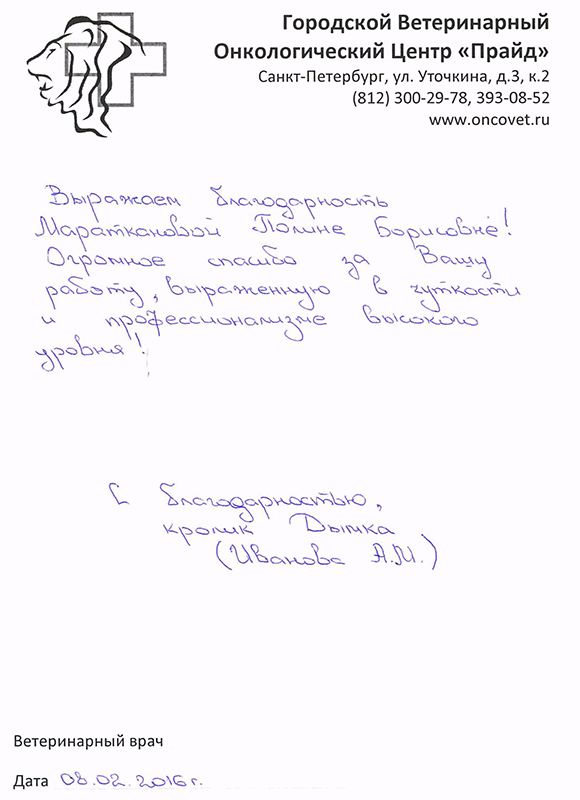 Городской Ветеринарный
Онкологический Центр «Прайд»
Санкт-Петербург, ул. Уточкина, д.3, к.2
(812) 300-29-78, 393-08-52
www.oncovet.ru
Выражаем благодарность
Маратkановой Полине Борисовне!
Огромное спасибо за Вашу
работу, выраженную в чуткости
и профессионализме высокого
уровня!
С благодарностью,
кролик Дымка
(Иванова А.М.)
Ветеринарный врач
Дата 08.02.2016 г.